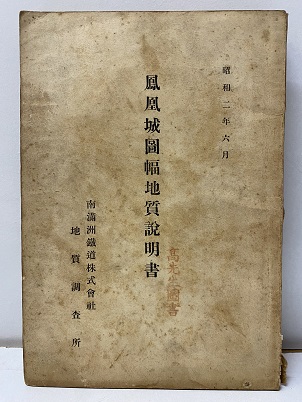 昭和二年六月
鳳凰城圖幅地質說明書
南滿洲鐵道株式會社
地質調查所